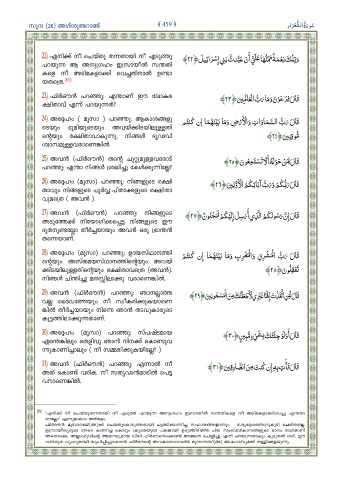 സൂറ: (26) അശ്ശുഅറാഅ് ( 459 ) سُورَةُ الشُّعَرَاء
22) എനിക്ക് നീ ചെയ്തു തന്നതായി നീ എടുത്തു
പറയുന്ന ആ അനുഗ്രഹം ഇസ്രായീൽ സന്തതി
കളെ നീ അടിമകളാക്കി വെച്ചതിനാൽ ഉണ്ടാ
യതത്രെ.
وَتِلْكَ نِعْمَةٌ تَمُنُّهَا عَلَيَّ أَنْ عَبَّدتَّ بَنِي إِسْرَائِيلَ ﴿٢٢﴾
23) ഫിർഔൻ പറഞ്ഞു: എന്താണ് ഈ ലോകര
ക്ഷിതാവ് എന്ന് പറയുന്നത്?
قَالَ فِرْعَوْنُ وَمَا رَبُّ الْعَالَمِينَ ﴿٢٣﴾
24) അദ്ദേഹം ( മൂസാ ) പറഞ്ഞു: ആകാശങ്ങളു
ടെയും ഭൂമിയുടെയും അവയ്ക്കിടയിലുള്ളതി
ന്റെയും രക്ഷിതാവാകുന്നു. നിങ്ങൾ ദൃഢവി
ശ്വാസമുള്ളവരാണെങ്കിൽ.
قَالَ رَبُّ السَّمَاوَاتِ وَالْأَرْضِ وَمَا بَيْنَهُمَا إِن كُنتُم
مُّوقِنِينَ ﴿٢٤﴾
25) അവൻ (ഫിർഔൻ) തന്റെ ചുറ്റുമുള്ളവരോട്
പറഞ്ഞു: എന്താ നിങ്ങൾ ശ്രദ്ധിച്ചു കേൾക്കുന്നില്ലേ?
قَالَ لِمَنْ حَوْلَهُ أَلَا تَسْتَمِعُونَ ﴿٢٥﴾
26) അദ്ദേഹം (മൂസാ) പറഞ്ഞു: നിങ്ങളുടെ രക്ഷി
താവും നിങ്ങളുടെ പൂർവ്വ പിതാക്കളുടെ രക്ഷിതാ
വുമത്രെ ( അവൻ )
قَالَ رَبُّكُمْ وَرَبُّ آبَائِكُمُ الْأَوَّلِينَ ﴿٢٦﴾
27) അവൻ (ഫിർഔൻ) പറഞ്ഞു: നിങ്ങളുടെ
അടുത്തേക്ക് നിയോഗിക്കപ്പെട്ട നിങ്ങളുടെ ഈ
ദൂതനുണ്ടല്ലോ തീർച്ചയായും അവൻ ഒരു ഭ്രാന്തൻ
തന്നെയാണ്.
قَالَ إِنَّ رَسُولَكُمُ الَّذِي أُرْسِلَ إِلَيْكُمْ لَمَجْنُونٌ ﴿٢٧﴾
28) അദ്ദേഹം (മൂസാ) പറഞ്ഞു: ഉദയസ്ഥാനത്തി
ന്റെയും അസ്തമയസ്ഥാനത്തിന്റെയും അവയ്
ക്കിടയിലുള്ളതിന്റെയും രക്ഷിതാവത്രെ (അവൻ).
നിങ്ങൾ ചിന്തിച്ചു മനസ്സിലാക്കു വരാണെങ്കിൽ.
قَالَ رَبُّ الْمَشْرِقِ وَالْمَغْرِبِ وَمَا بَيْنَهُمَا إِن كُنتُمْ
تَعْقِلُونَ ﴿٢٨﴾
29) അവൻ (ഫിർഔൻ) പറഞ്ഞു: ഞാനല്ലാത്ത
വല്ല ദൈവത്തേയും നീ സ്വീകരിക്കുകയാണെ
ങ്കിൽ തീർച്ചയായും നിന്നെ ഞാൻ തടവുകാരുടെ
കൂട്ടത്തിലാക്കുന്നതാണ്.
قَالَ لَئِنِ اتَّخَذْتَ إِلَٰهًا غَيْرِي لَأَجْعَلَنَّكَ مِنَ الْمَسْجُونِينَ ﴿٢٩﴾
30) അദ്ദേഹം (മൂസാ) പറഞ്ഞു: സ്പഷ്ടമായ
എന്തെങ്കിലും തെളിവു ഞാൻ നിനക്ക് കൊണ്ടുവ
ന്നുകാണിച്ചാലും ( നീ സമ്മതിക്കുകയില്ലേ? )
قَالَ أَوَلَوْ جِئْتُكَ بِشَيْءٍ مُّبِينٍ ﴿٣٠﴾
31) അവൻ (ഫിർഔൻ) പറഞ്ഞു: എന്നാൽ നീ
അത് കൊണ്ട് വരിക. നീ സത്യവാൻമാരിൽ പെട്ട
വനാണെങ്കിൽ.
قَالَ فَأْتِ بِهِ إِن كُنتَ مِنَ الصَّادِقِينَ ﴿٣١﴾